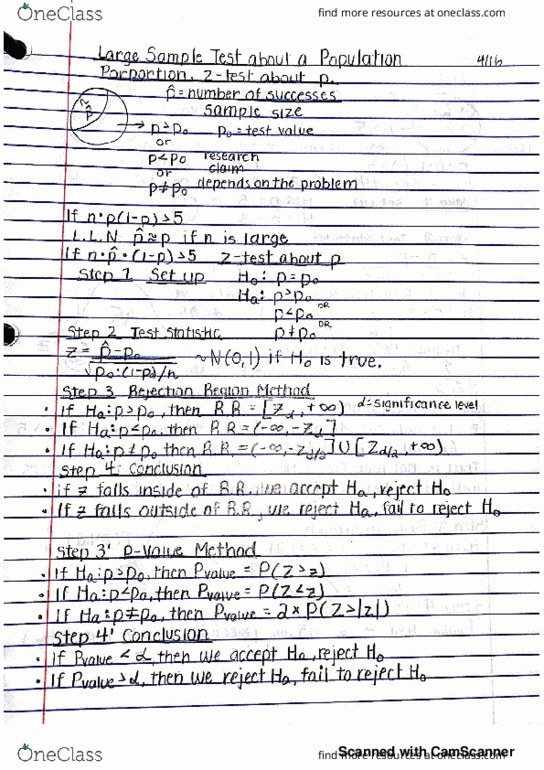 OneClass
find more resources at oneclass.com
Large Sample Test about a Population 4/16
Porportion. Z-test about p.
p̂ = number of successes
sample size
n
p̂
→ p>p₀ p₀ = test value
or
p<p₀ research
or claim
p≠p₀ depends on the problem
If n·p(1-p)>5
L.L.N p̂≈p if n is large
If n·p̂·(1-p̂)>5 Z-test about p
Step 1 Set up H₀: p=p₀
Ha: p>p₀
OR
p<p₀
OR
p≠p₀
Step 2 Test Statistic
z = p̂-p₀
√p₀·(1-p₀)/n ~N(0,1) if H₀ is true.
Step 3 Rejection Region Method
• If Ha: p>p₀, then R.R = [Zα, +∞) α=significance level
• If Ha: p<p₀, then R.R = (-∞, -Zα]
• If Ha: p≠p₀ then R.R. = (-∞, -Zα/2] U [Zα/2, +∞)
Step 4: Conclusion
• if z falls inside of R.R, we accept Ha, reject H₀
• If z falls outside of R.R, we reject Ha, fail to reject H₀
Step 3' P-Value Method
• If Ha: p>p₀, then Pvalue = P(Z>z)
• If Ha: p<p₀, then Pvalue = P(Z<z)
• If Ha: p≠p₀, then Pvalue = 2×P(Z>|z|)
Step 4' Conclusion
• If Pvalue < α, then we accept Ha, reject H₀
• If Pvalue > α, then we reject Ha, fail to reject H₀
OneClass
find more resources at oneclass.com
Scanned with CamScanner